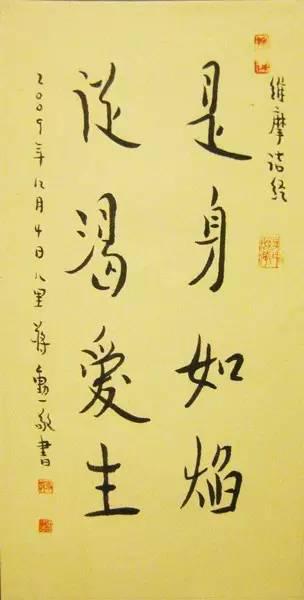 維摩詰經
是身如焰
從渴愛生
2009年12月4日八里蔣勳敬書